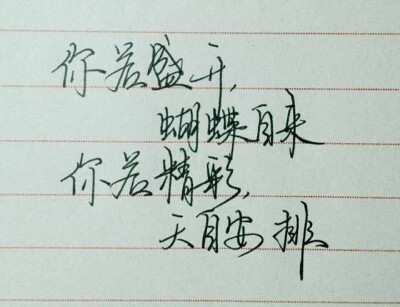 你若盛开,
蝴蝶自来
你若精彩,
天自安排